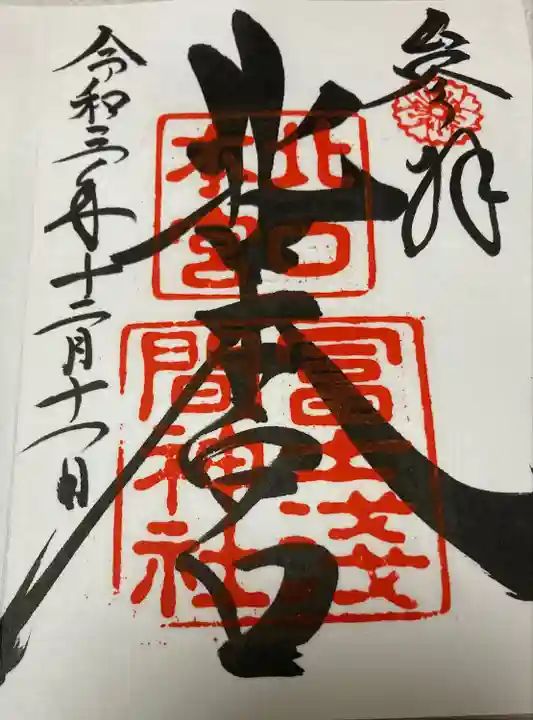 参拝
北口本宮
冨士淺間神社
北口本宮
令和三年十二月十一日